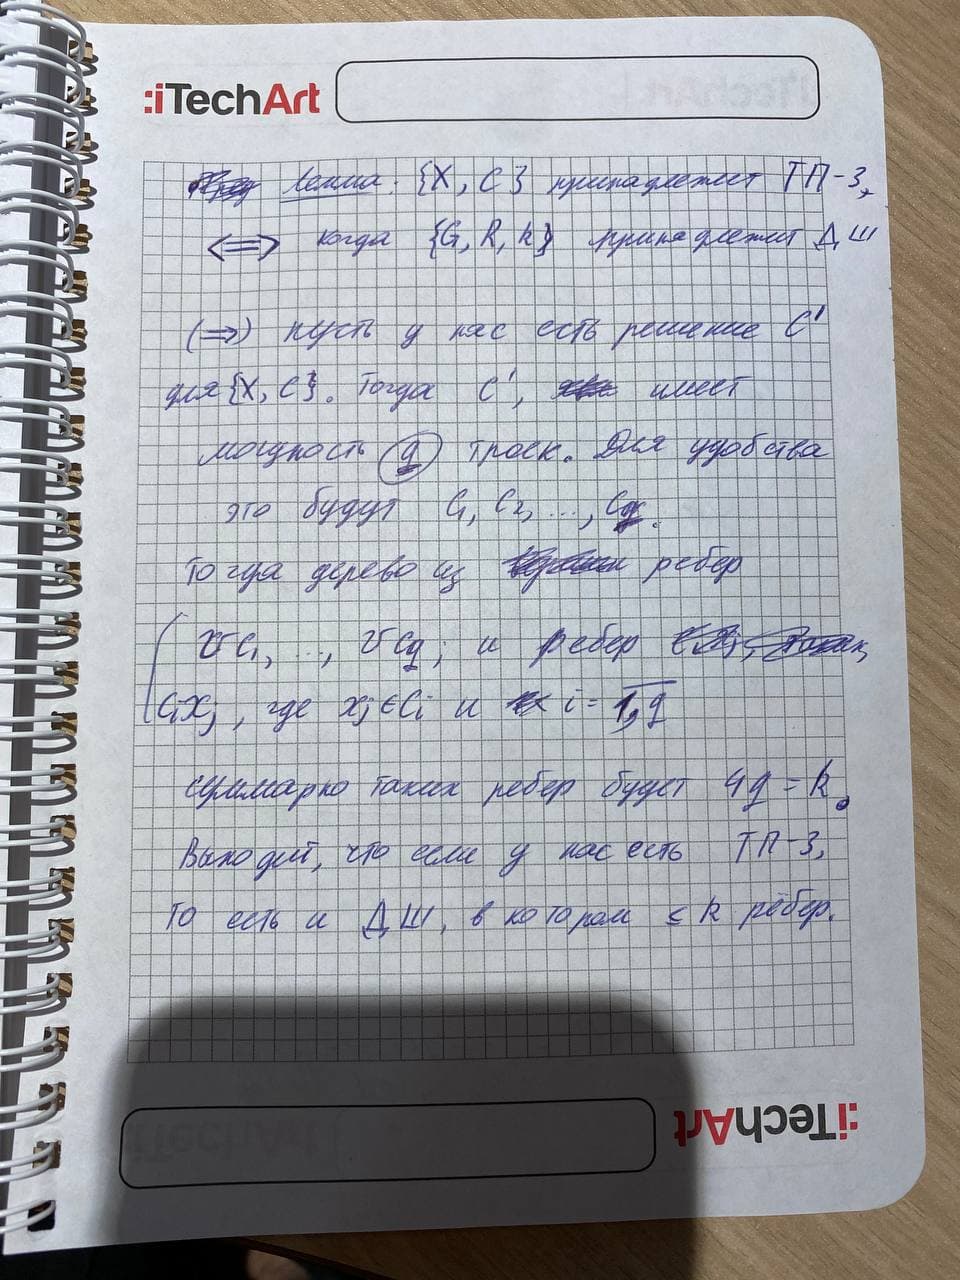 :iTechArt
Лемма. {X, C} принадлежит ТП-3,
<=> когда {G, R, k} принадлежит ДШ
(=>) пусть у нас есть решение C'
для {X, C}. Тогда C', имеет
мощность q троек. Для удобства
это будут C₁, C₂, ..., Cq.
Тогда дерево из ребер
vC₁, ..., vCq; и ребер
CᵢXⱼ, где xⱼ ∈ Cᵢ и i = 1,q
суммарно таких ребер будет 4q = k.
Выходит, что если у нас есть ТП-3,
то есть и ДШ, в котором ≤ k рёбер.
:iTechArt